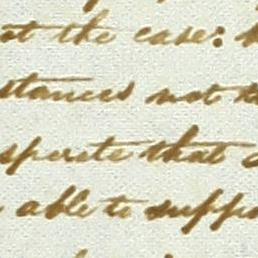 at the case:
stances not
sperate that
able to suppo